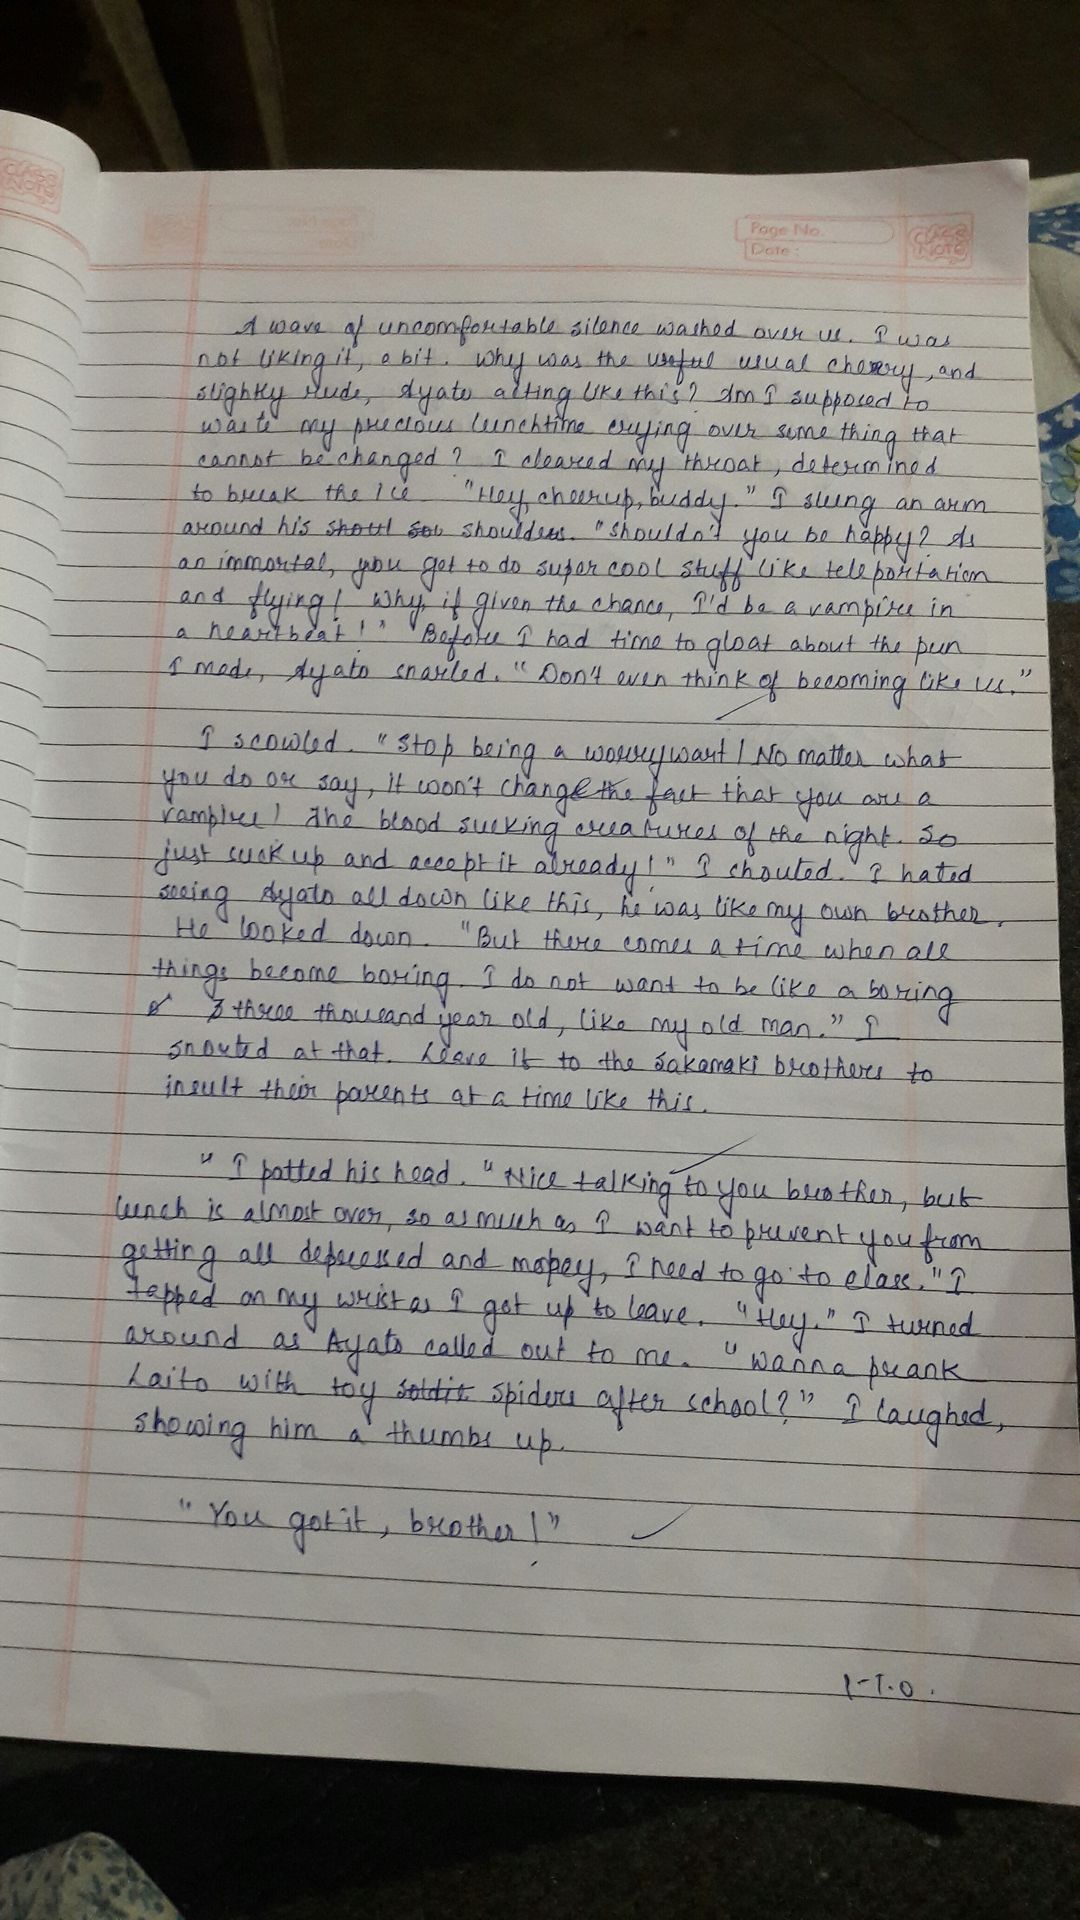 CLASS NOTE
Page No.
Date:
CLASS NOTE
A wave of uncomfortable silence washed over us. I was
not liking it, a bit. Why was the useful usual cheery, and
slightly rude, Ayato acting like this? Am I supposed to
waste my precious lunchtime crying over some thing that
cannot be changed? I cleared my throat, determined
to break the ice. "Hey, cheer up, buddy." I slung an arm
around his shoul sou shoulders. "Shouldn't you be happy? As
an immortal, you get to do super cool stuff like teleportation
and flying! Why, if given the chance, I'd be a vampire in
a heartbeat!" Before I had time to gloat about the pun
I made, Ayato snarled. "Don't even think of becoming like us."
I scowled. "Stop being a worrywart! No matter what
you do or say, it won't change the fact that you are a
vampire! The blood sucking creatures of the night. So
just suck up and accept it already!" I shouted. I hated
seeing Ayato all down like this, he was like my own brother.
He looked down. "But there comes a time when all
things become boring. I do not want to be like a boring
three thousand year old, like my old man." I
snorted at that. Leave it to the Sakamaki brothers to
insult their parents at a time like this.
" I patted his head. "Nice talking to you brother, but
lunch is almost over, so as much as I want to prevent you from
getting all depressed and mopey, I need to go to class." I
tapped on my wrist as I got up to leave. "Hey." I turned
around as Ayato called out to me. "Wanna prank
Laito with toy soldie spiders after school?" I laughed,
showing him a thumbs up.
"You got it, brother!"
P.T.O.